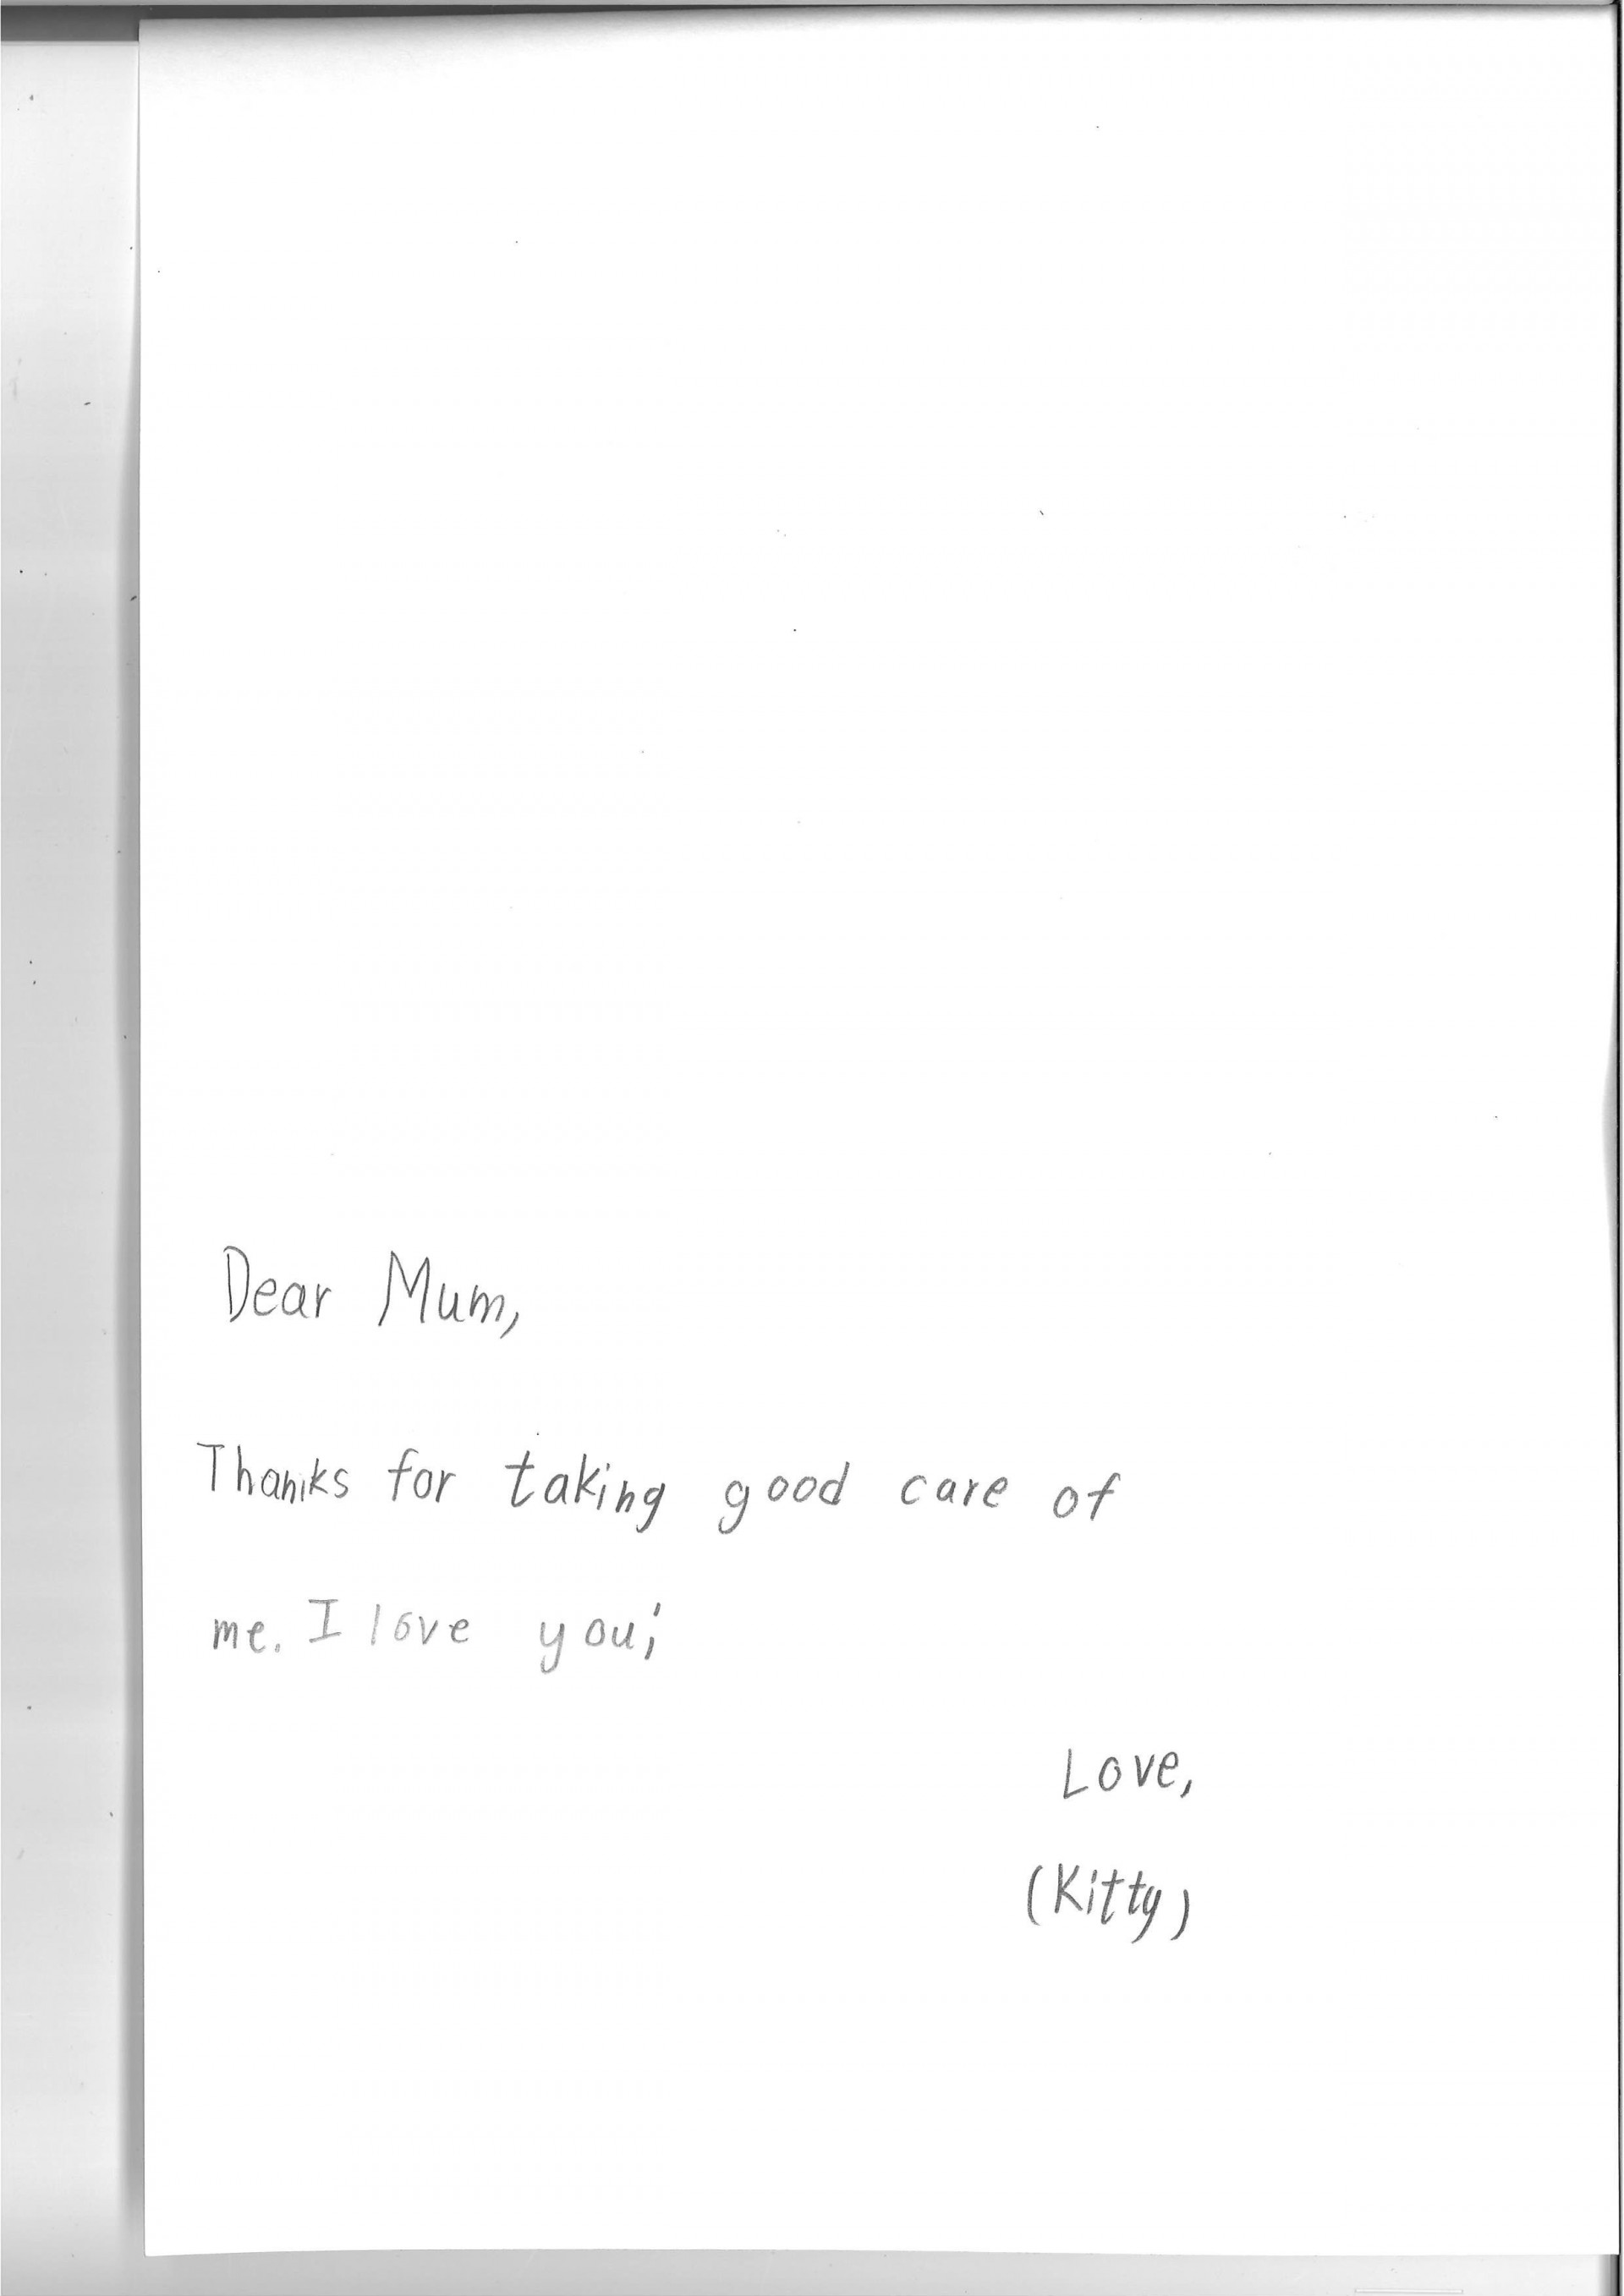 Dear Mum,
Thanks for taking good care of
me. I love you;
Love,
(Kitty)